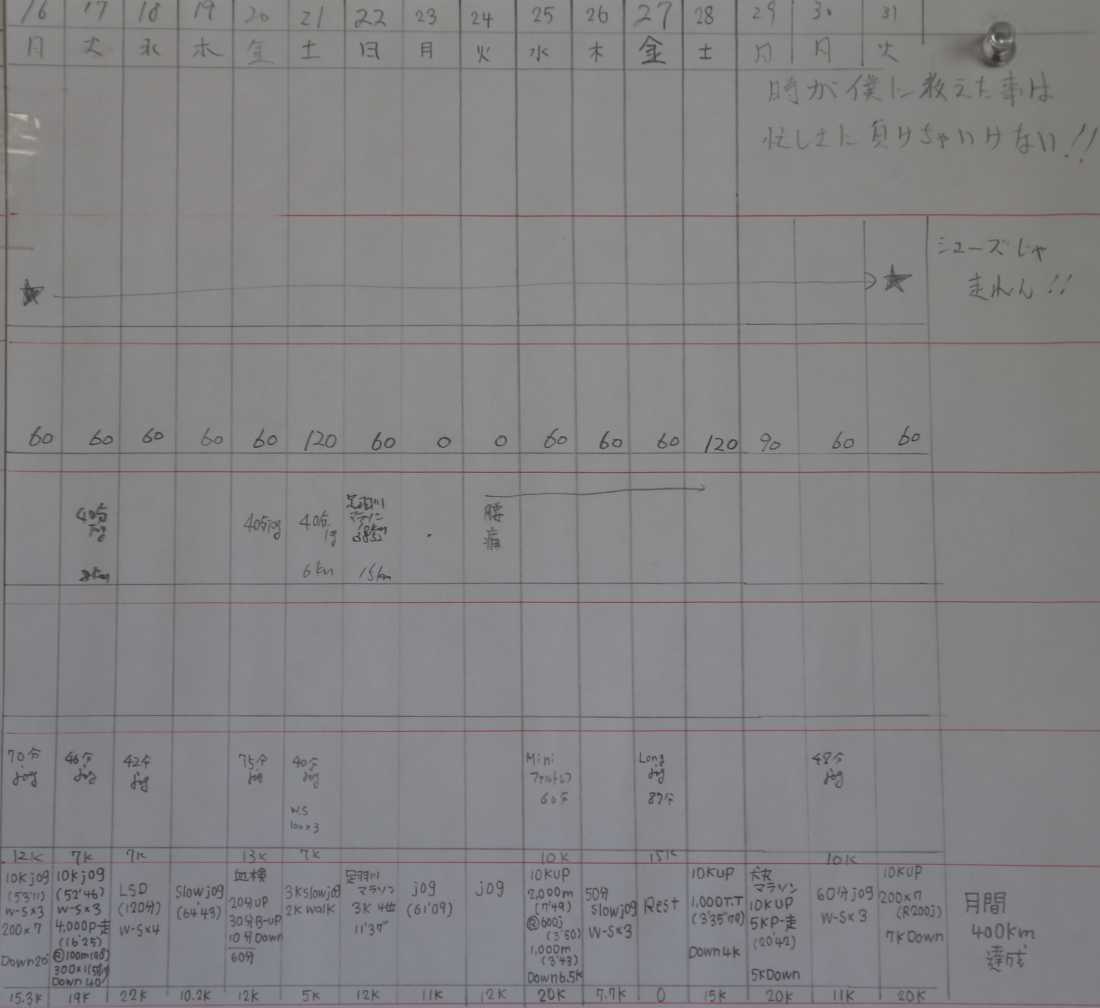 16 17 18 19 20 21 22 23 24 25 26 27 28 29 30 31
月 火 水 木 金 土 日 月 火 水 木 金 土 日 月 火
時が僕に教えた事は
忙しさに負けちゃいけない!!
★ ★
シューズじゃ
走れん!!
60 60 60 60 60 120 60 0 0 60 60 60 120 90 60 60
40分
jog
8km
40分jog
40分
jog
6km
足羽川
マラソン
15km
腰
痛
70分
jog
12K
46分
jog
7K
42分
jog
7K
75分
jog
13K
40分
jog
W.S
100×3
7K
Mini
ファルトレク
60分
10K
Long
jog
87分
15K
48分
jog
10K
10Kjog
(53'11)
W-S×3
200×7
Down20'
15.3K
10Kjog
(52'46)
W-S×3
4,000P-走
(16'25)
Down40'
19K
LSD
(120分)
W-S×4
22K
Slowjog
(64'43)
10.2K
血検
20分UP
30分B-UP
10分Down
60分
12K
3Kslowjog
2K walk
5K
足羽川
マラソン
3K 4位
11'37"
12K
jog
(61'09)
11K
jog
12K
10KUP
2,000m
(7'49)
®600j
(3'50)
1,000m
(3'43)
Down6.5K
20K
50分
slowjog
W-S×3
7.7K
Rest
0
10KUP
1,000T.T
(3'35"70)
Down4K
15K
マラソン
10KUP
5KP-走
(20'42)
5KDown
20K
60分jog
W-S×3
11K
10KUP
200×7
(R200j)
7KDown
20K
月間
400km
達成